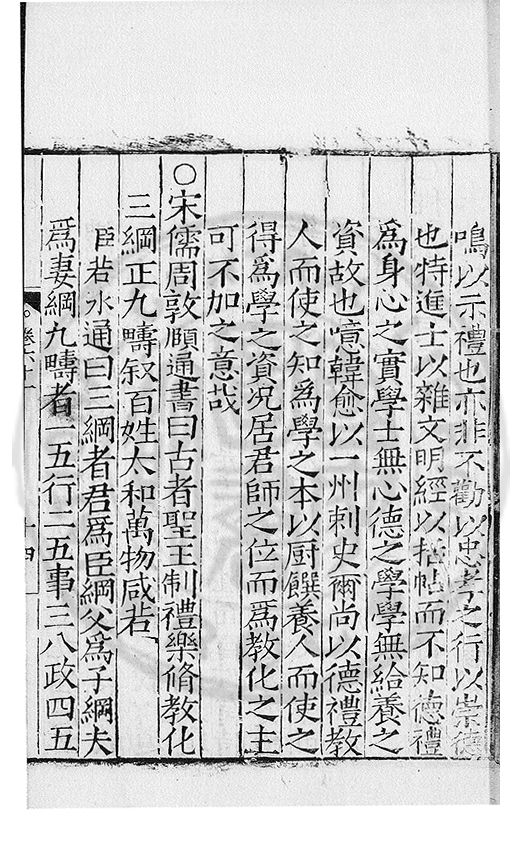 鳴以示禮也亦非不勸以忠孝之行以崇德
也特進士以雜文明經以括帖而不知德禮
為身心之實學士無心德之學學無給養之
資故也噫韓愈以一州刺史爾尚以德禮教
人而使之知為學之本以厨饌養人而使之
得為學之資况居君師之位而爲教化之主
可不加之意哉
○宋儒周敦頤通書曰古者聖王制禮樂脩教化
三綱正九疇叙百姓太和萬物咸若
臣若水通曰三綱者君爲臣綱父爲子綱夫
爲妻綱九疇者一五行二五事三八政四五
卷六十二
十四